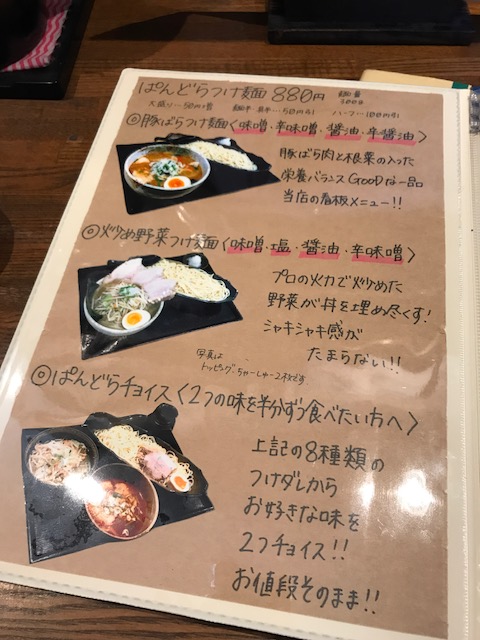 ぱんどらつけ麺 880円 麺量 300g
大盛り…50円増 麺半 具半…50円引 ハーフ…100円引
◎豚ばらつけ麺〈味噌・辛味噌・醤油・辛醤油〉
豚ばら肉と根菜の入った
栄養バランスGooDな一品
当店の看板メニュー!!
◎炒め野菜つけ麺〈味噌・塩・醤油・辛味噌〉
プロの火力で炒めた
野菜が丼を埋め尽くす!
シャキシャキ感が
たまらない!!
写真は
トッピングちゃーしゅー2枚です
◎ぱんどらチョイス〈2つの味を半分ずつ食べたい方へ〉
上記の8種類の
つけダレから
お好きな味を
2つチョイス!!
お値段そのまま!!